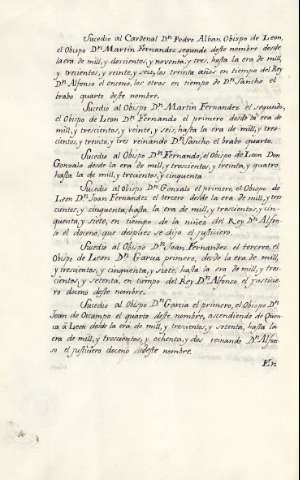 Sucedio al Cardenal Dⁿ Pedro Alban Obispo de Leon,
el Obispo Dⁿ Martin Fernandez segundo deste nombre desde
la era de mill, y docientos, y noventa, y tres, hasta la era de mill,
y trecientos, y veinte, y seis, los treinta años en tiempo del Rey
Dⁿ Alfonso el onceno, los otros en tiempo de Dⁿ Sancho el
brabo quarto deste nombre.
Sucedio al Obispo Dⁿ Martin Fernandez el segundo,
el Obispo de Leon Dⁿ Fernando el primero desde la era de
mill, y trescientos, y veinte, y seis, hasta la era de mill, y tres-
cientos, y treinta, y tres reinando Dⁿ Sancho el brabo quarto.
Sucedio al Obispo Dⁿ Fernando, el Obispo de Leon Don
Gonzalo desde la era de mill, y trescientos, y treinta, y quatro,
hasta la de mill, y trescientos, y cinquenta
Sucedio al Obispo Dⁿ Gonzalo el primero, el Obispo de
Leon Dⁿ Joan Fernandez el tercero desde la era de mill, y tres-
cientos, y cinquenta, hasta la era de mill, y trescientos, y cin-
quenta, y siete, en tiempo de la niñez del Rey Dⁿ Alfon-
so el doceno, que despues se dijo el justiciero
Sucedio al Obispo Dⁿ Joan Fernandez el tercero, el
Obispo de Leon Dⁿ Garcia primero, desde la era de mill,
y trescientos, y cinquenta, y siete, hasta la era de mill, y tres-
cientos, y setenta, en tiempo del Rey Dⁿ Alfonso el justicie-
ro doceno deste nombre.
Sucedio al Obispo Dⁿ Garcia el primero, el Obispo Dⁿ
Joan de Ocampo el quarto deste nombre, ascendiendo de Cuen-
ca à Leon desde la era de mill, y trescientos, y setenta, hasta la
era de mill, y trescientos, y ochenta, y dos reinando Dⁿ Alfon-
so el justiciero doceno deste nombre.